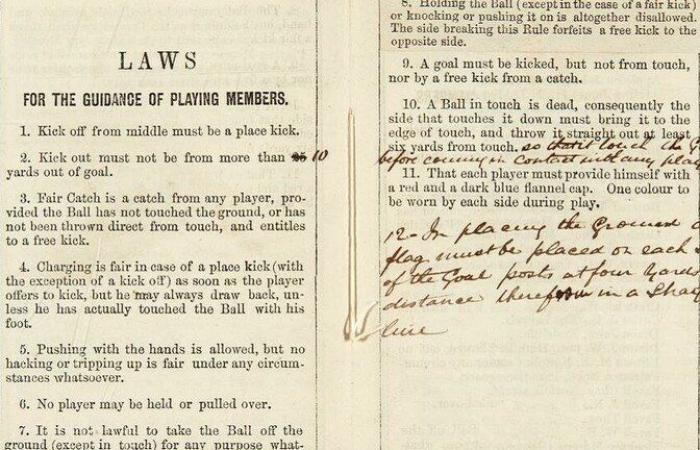 LAWS
FOR THE GUIDANCE OF PLAYING MEMBERS.
1. Kick off from middle must be a place kick.
2. Kick out must not be from more than 25 10
yards out of goal.
3. Fair Catch is a catch from any player, pro-
vided the Ball has not touched the ground, or has
not been thrown direct from touch, and entitles
to a free kick.
4. Charging is fair in case of a place kick (with
the exception of a kick off) as soon as the player
offers to kick, but he may always draw back, un-
less he has actually touched the Ball with his
foot.
5. Pushing with the hands is allowed, but no
hacking or tripping up is fair under any circum-
stances whatsoever.
6. No player may be held or pulled over.
7. It is not lawful to take the Ball off the
ground (except in touch) for any purpose what-
8. Holding the Ball (except in the case of a fair kick)
or knocking or pushing it on is altogether disallowed.
The side breaking this Rule forfeits a free kick to the
opposite side.
9. A goal must be kicked, but not from touch,
nor by a free kick from a catch.
10. A Ball in touch is dead, consequently the
side that touches it down must bring it to the
edge of touch, and throw it straight out at least
six yards from touch. so that it touch the G
before coming in contact with any play
11. That each player must provide himself with
a red and a dark blue flannel cap. One colour to
be worn by each side during play.
12- In placing the Ground a
flag must be placed on each
of the Goal posts at four yards
distance therefrom in a
line